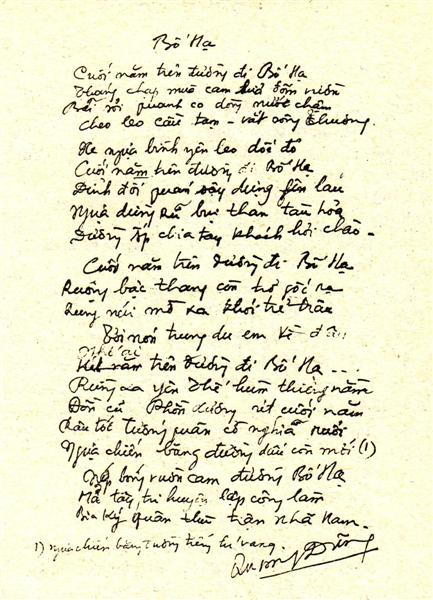 Bố Hạ
Cuối năm trên đường đi Bố Hạ
Tháng chạp mùa cam bưởi đốm vườn
Bến quanh co dòng nước chậm
Cheo leo cầu tạm - vắt sông Thương.
Xe ngựa bình yên leo dốc đỏ
Cuối năm trên đường đi Bố Hạ
Đỉnh đồi quan dừng lên lầu
Ngựa dừng rũ bụi than tàu hỏa
Đường chia tay khách hỏi chào -
Cuối năm trên đường đi Bố Hạ
Ruộng bậc thang còn trơ gốc rạ
Rừng nối mờ xa khói trẻ trâu
Bởi non trung du em về đâu
Hết năm trên đường đi Bố Hạ ...
Rừng xa Yên Thế hùm thiêng nằm
Đồn cũ Phồn Xương rét cuối năm
Râu tóc tướng quân cố nghĩa
Ngựa chiến băng đường đuôi còn (1)
bóng vườn cam đường Bố Hạ
Mả tây, tri huyện lập công lam
Bia ký quân thù trận Nhã Nam.
1) Ngựa chiến băng đường tiếng hí vang.
Quang Dũng